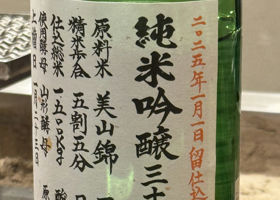 二〇二五年一月一日留仕込
純米吟醸三十
原料米 美山錦
精米歩合 五割五分
仕込総米 一五〇〇kg
使用酵母 山形酵母
上槽日 一月二十三日